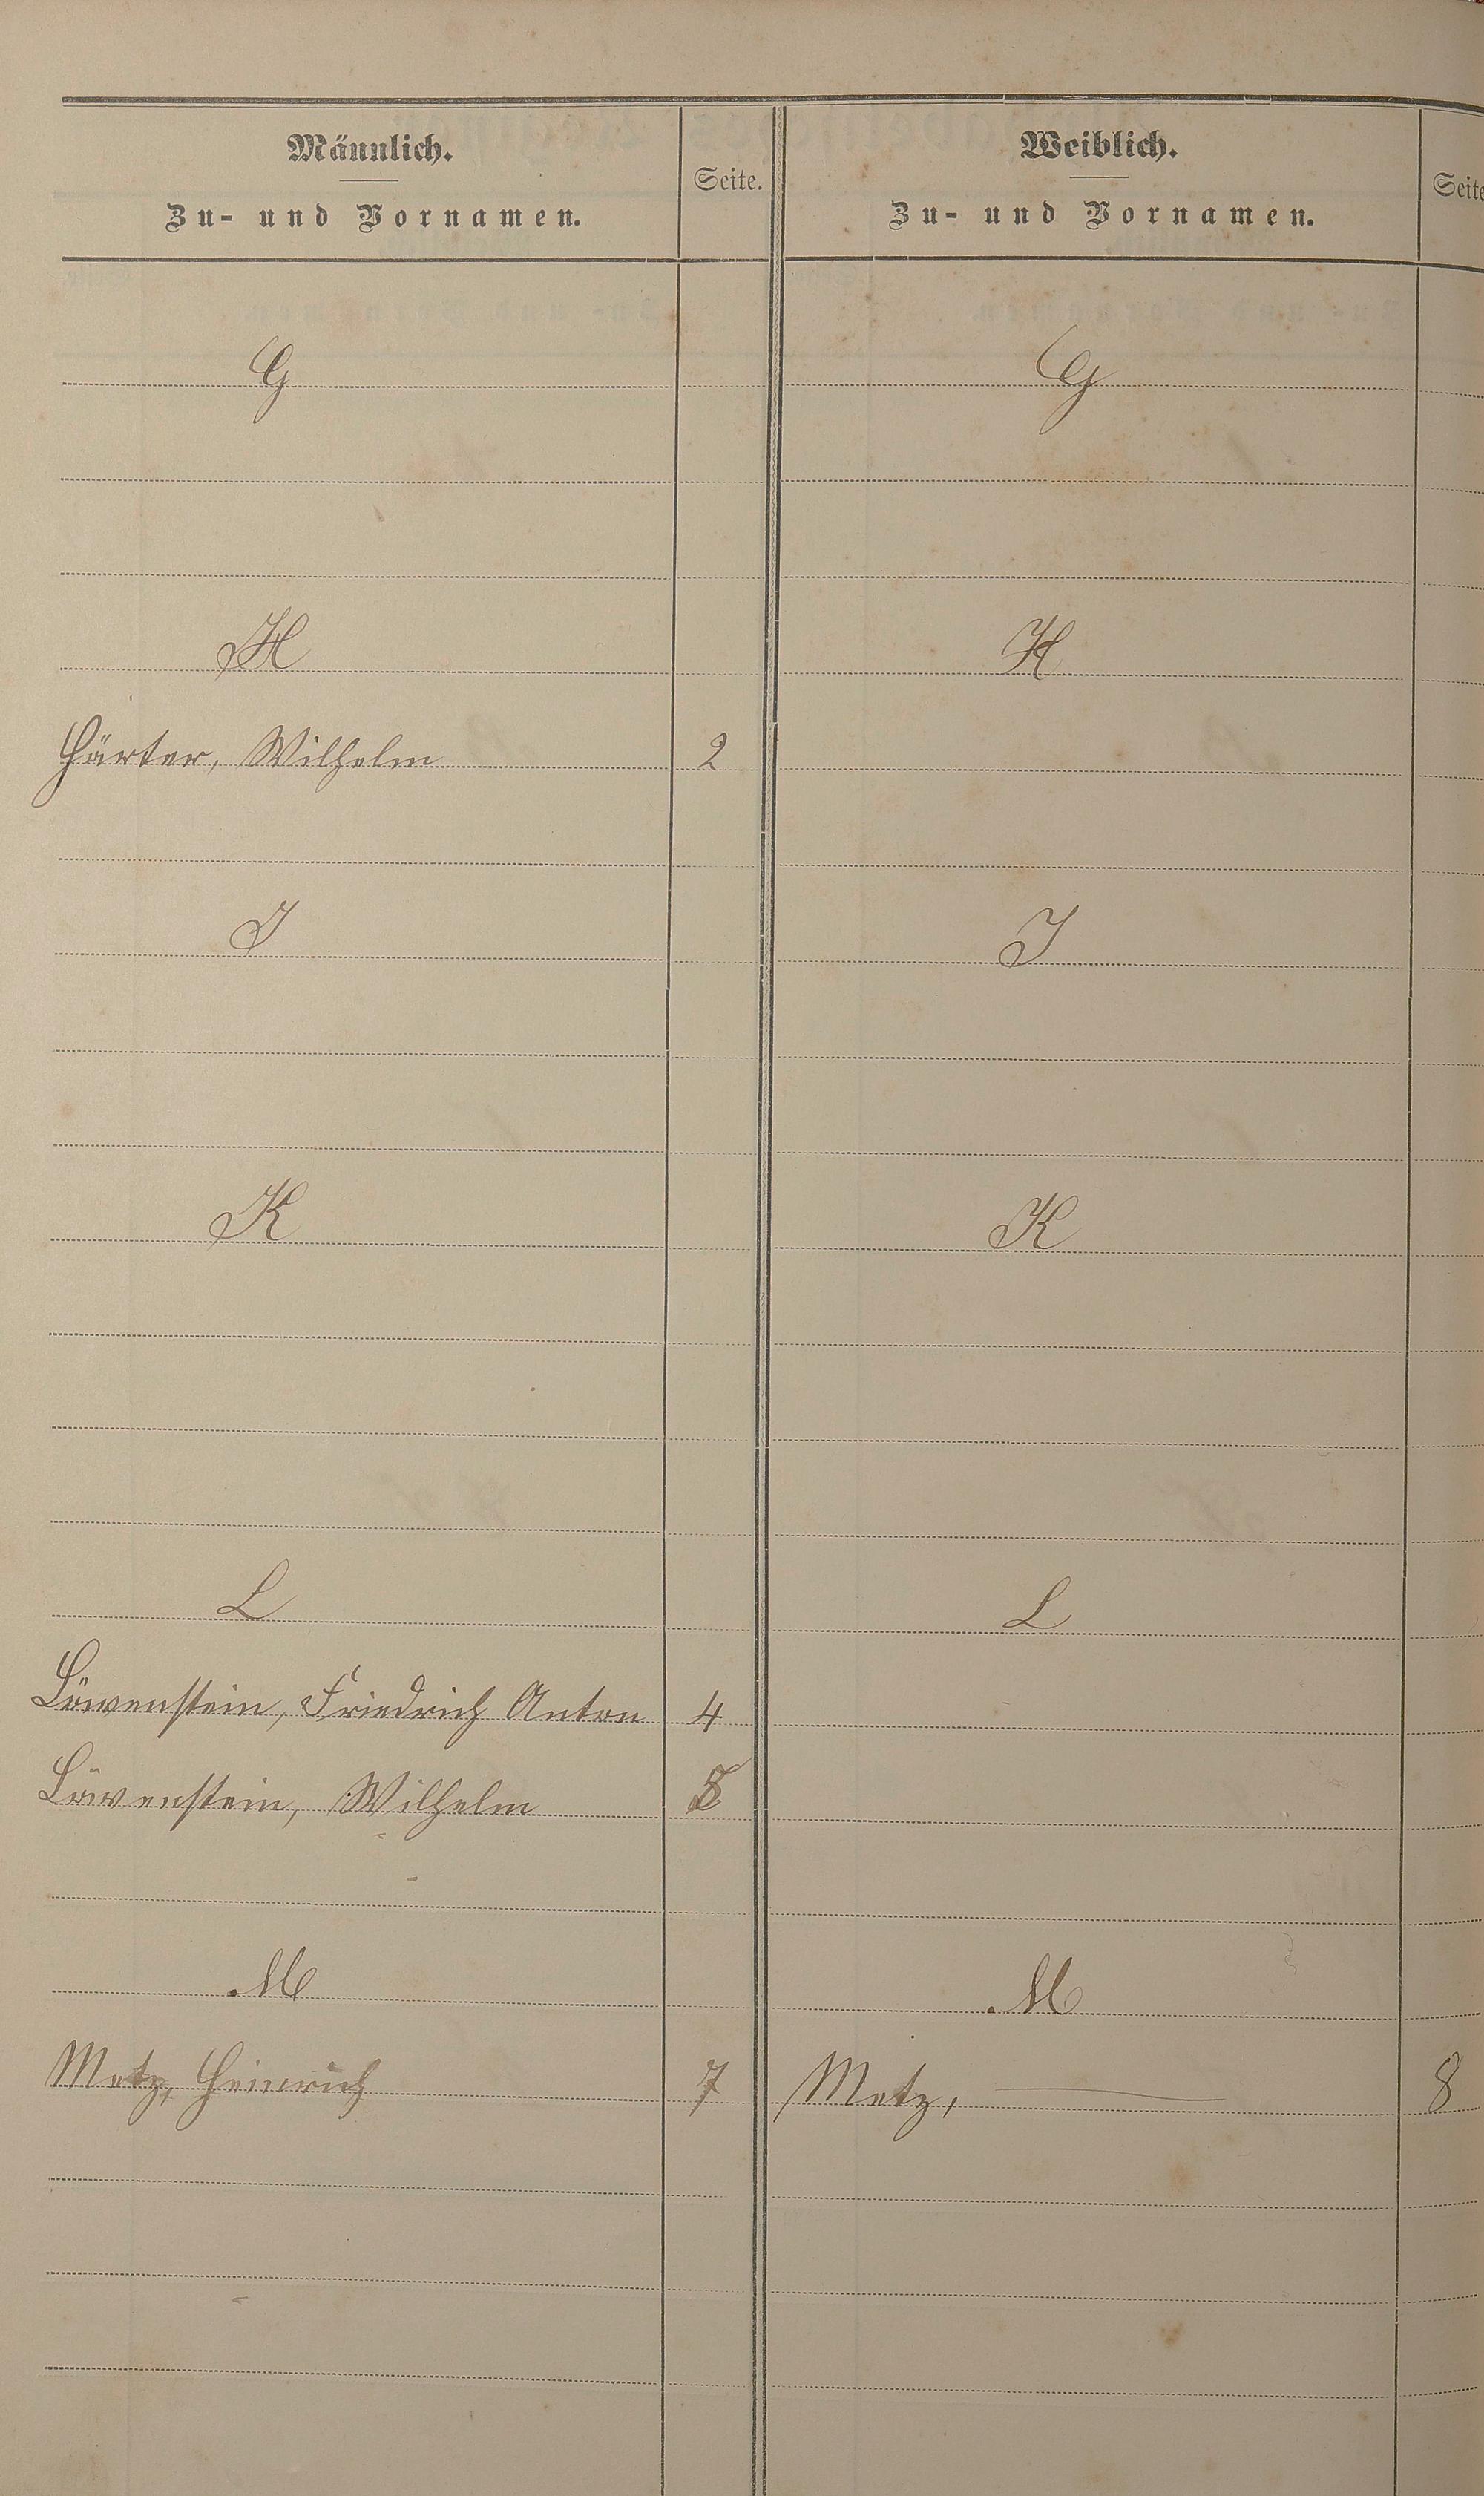 Männlich.
Zu- und Vornamen.
Seite.
Weiblich.
Zu- und Vornamen.
Seite
G
G
H
H
Härter, Wilhelm 2
I
I
K
K
L
L
Löwenstein, Friedrich Anton 4
Löwenstein, Wilhelm
M
M
Metz, Heinrich 7
Metz, — 8